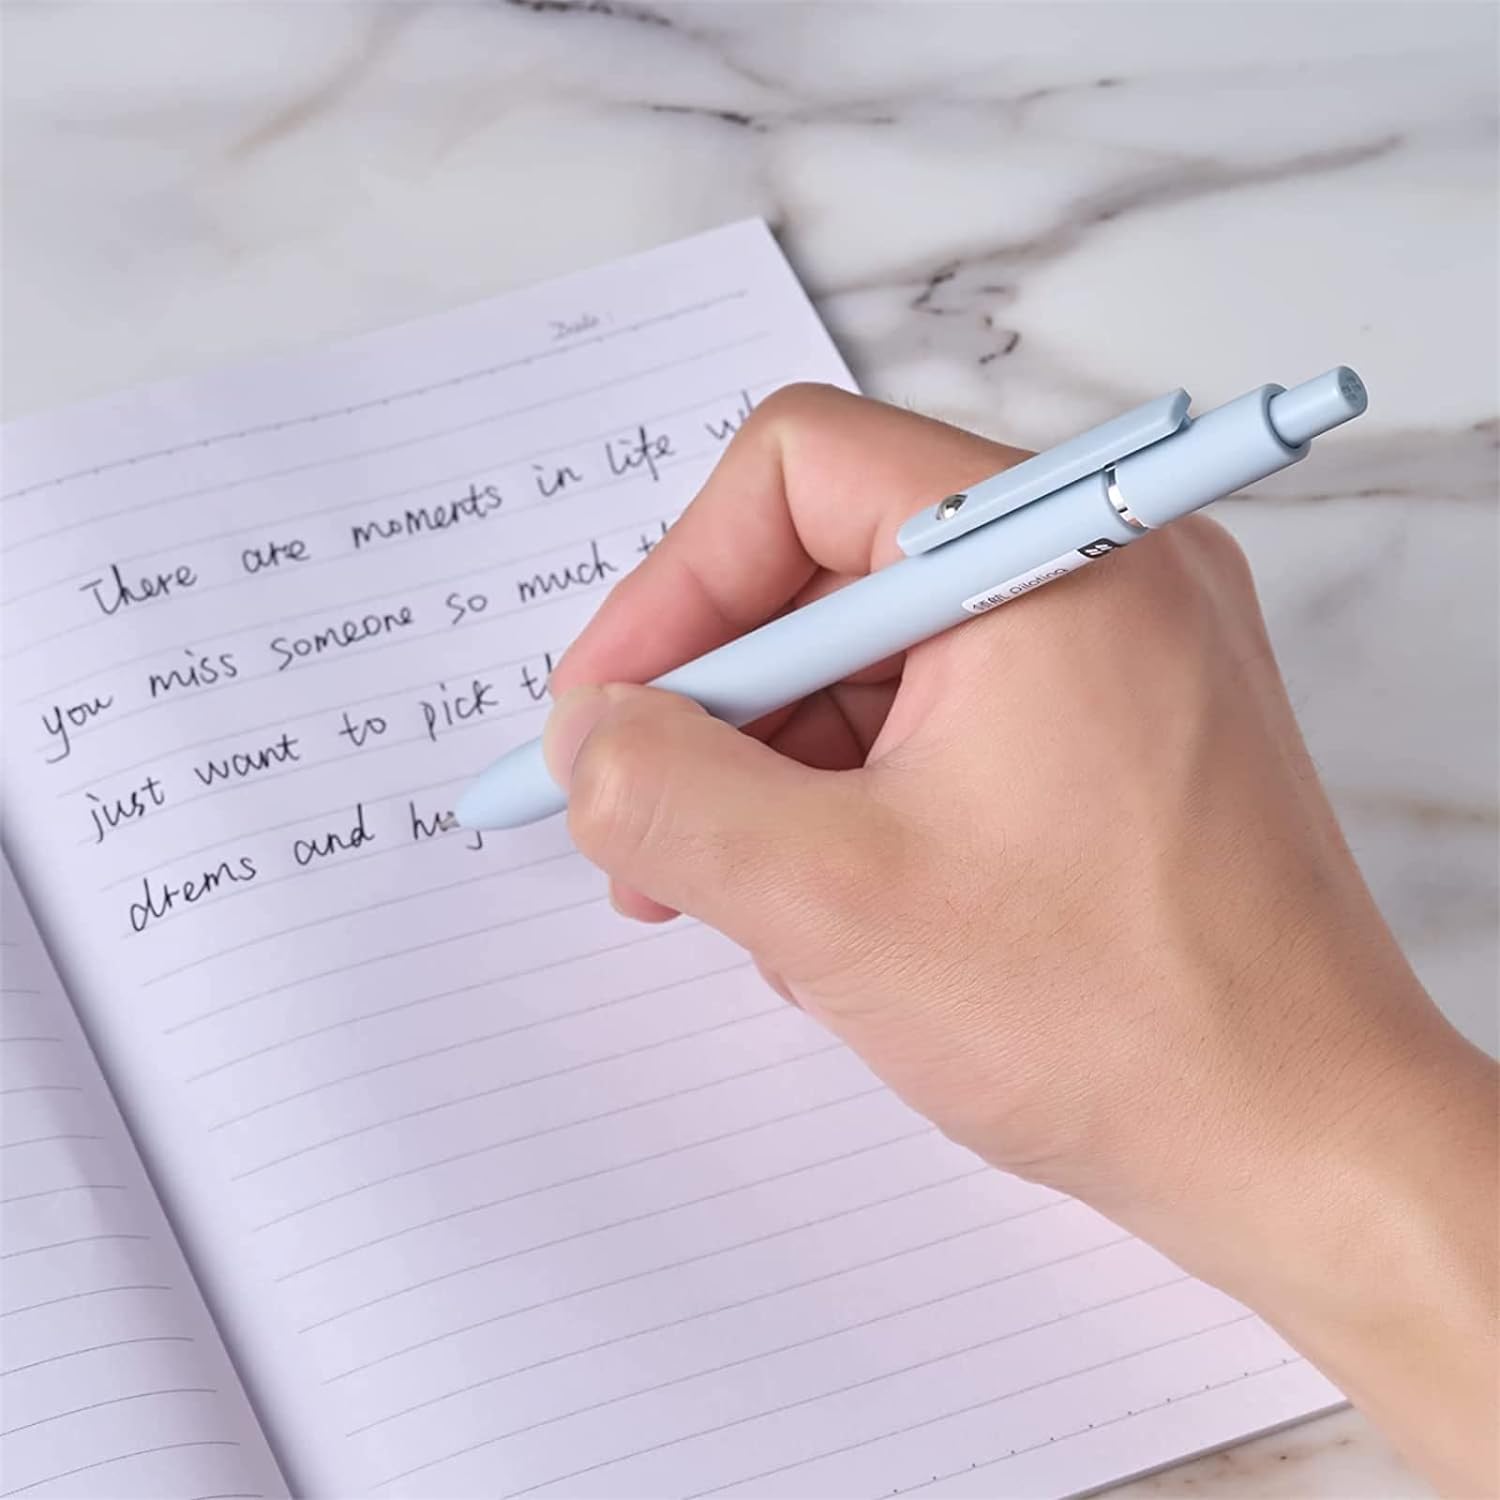 Date:
There are moments in life
you miss someone so much
just want to pick
drems and hug
领航 piloting